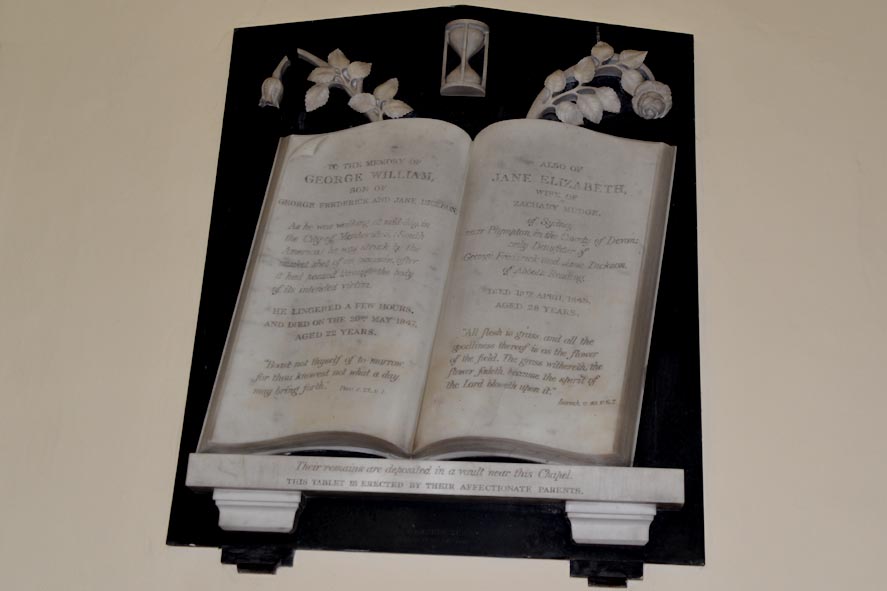 TO THE MEMORY OF
GEORGE WILLIAM,
SON OF
GEORGE FREDERICK AND JANE DICKSON.
As he was walking at mid-day in
the City of Monte-video, South
America; he was struck by the
musket shot of an assassin, after
it had passed through the body
of its intended victim.
HE LINGERED A FEW HOURS,
AND DIED ON THE 20TH MAY 1847,
AGED 22 YEARS.
"Boast not thyself of to morrow,
for thou knowest not what a day
may bring forth." Prov. c. 27. v. 1.
ALSO OF
JANE ELIZABETH,
WIFE OF
ZACHARY MUDGE,
of Sydney,
near Plympton, in the County of Devon;
only Daughter of
George Frederick and Jane Dickson,
of Reading.
DIED APRIL 1848,
AGED 28 YEARS.
"All flesh is grass, and all the
goodliness thereof is as the flower
of the field. The grass withereth, the
flower fadeth, because the spirit of
the Lord bloweth upon it."
Isaiah, c. 40. v. 6.7.
Their remains are deposited in a vault near this Chapel.
THIS TABLET IS ERECTED BY THEIR AFFECTIONATE PARENTS.